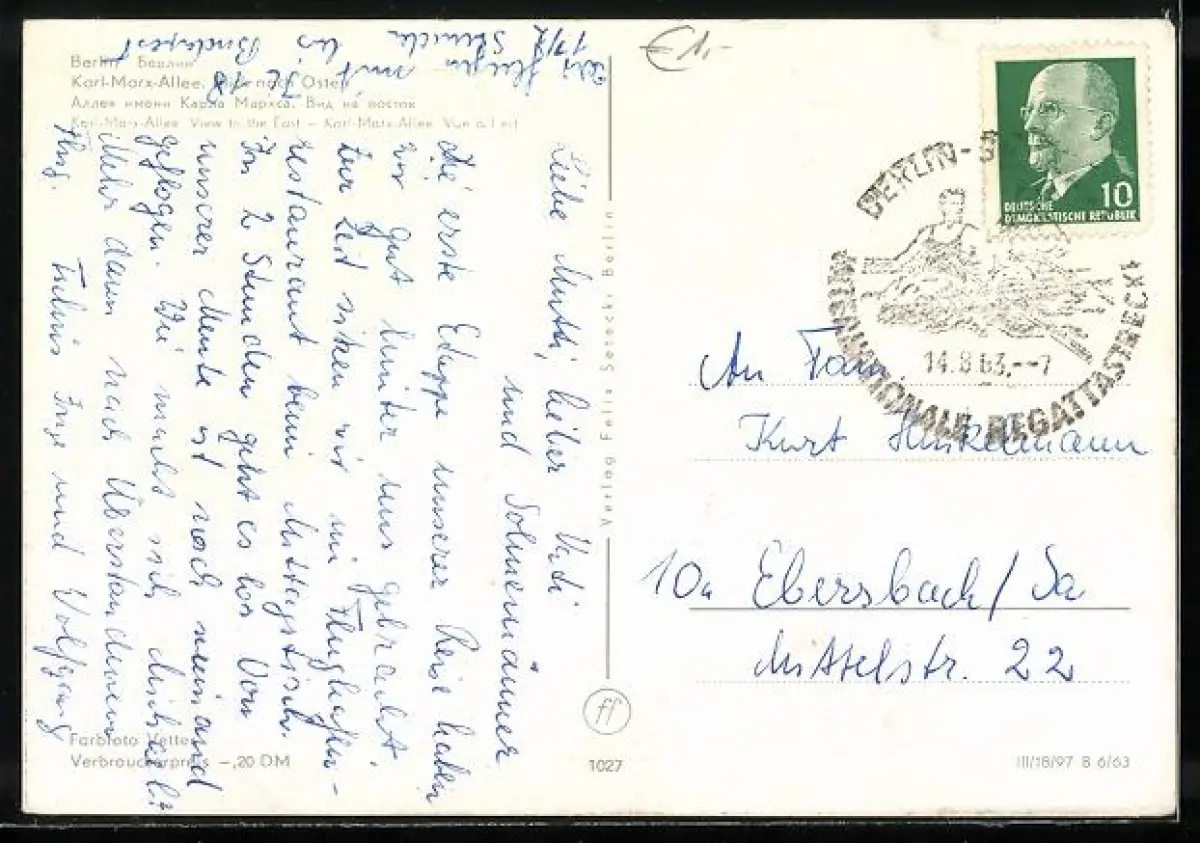 €1,-
Berlin Берлин
Karl-Marx-Allee. Blick nach Osten
Аллея имени Карла Маркса. Вид на восток
Karl-Marx-Allee. View to the East – Karl-Marx-Allee. Vue a l'est
Liebe Mutti, lieber Vati
und Sohnemänner
die erste Etappe unserer Reise haben
wir gut hinter uns gebracht.
Zur Zeit sitzen wir im Flughafen-
restaurant beim Mittagstisch.
In 2 Stunden geht es los. Von
unserer Meute ist noch niemand
geflogen. Wie macht sich Michael?
Mehr dann nach Überstandenem
Flug. Tschüs Inge und Wolfgang
Wir fliegen mit IL 18
1 1/2 Stunden bis Budapest
Farbfoto Vetter
Verbraucherpreis –,20 DM
Verlag Felix Setecki Berlin
ff
1027
DEUTSCHE
DEMOKRATISCHE REPUBLIK
10
BERLIN-
14.8.63.--7
INTERNATIONALE REGATTASTRECK
An Fam.
Kurt Hinkelmann
10a Ebersbach/Sa
Mittelstr. 22
III/18/97 B 6/63